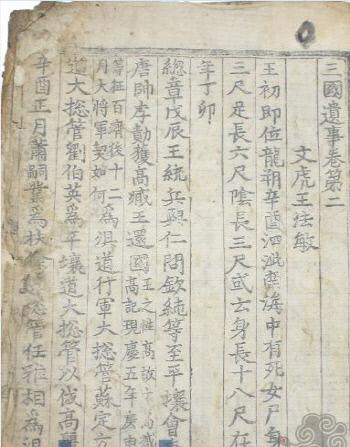 三國遺事卷第二
文虎王法敏
王初即位龍朔辛酉泗沘南海中有死女尸身
三尺足長六尺陰長三尺或云身長十八尺在
年丁卯
總章戊辰王統兵與仁問欽純等至平壤會
唐帥李勣獲高臧王還國
王之姓高故云高臧
高記現慶五年庚申
等征百濟後十二
月大將軍契如何
為浿道行軍大捴管蘇定方
道大捴管劉伯英為平壤道大捴管以伐高
辛酉正月蕭嗣業為扶餘道捴管任雅相為浿